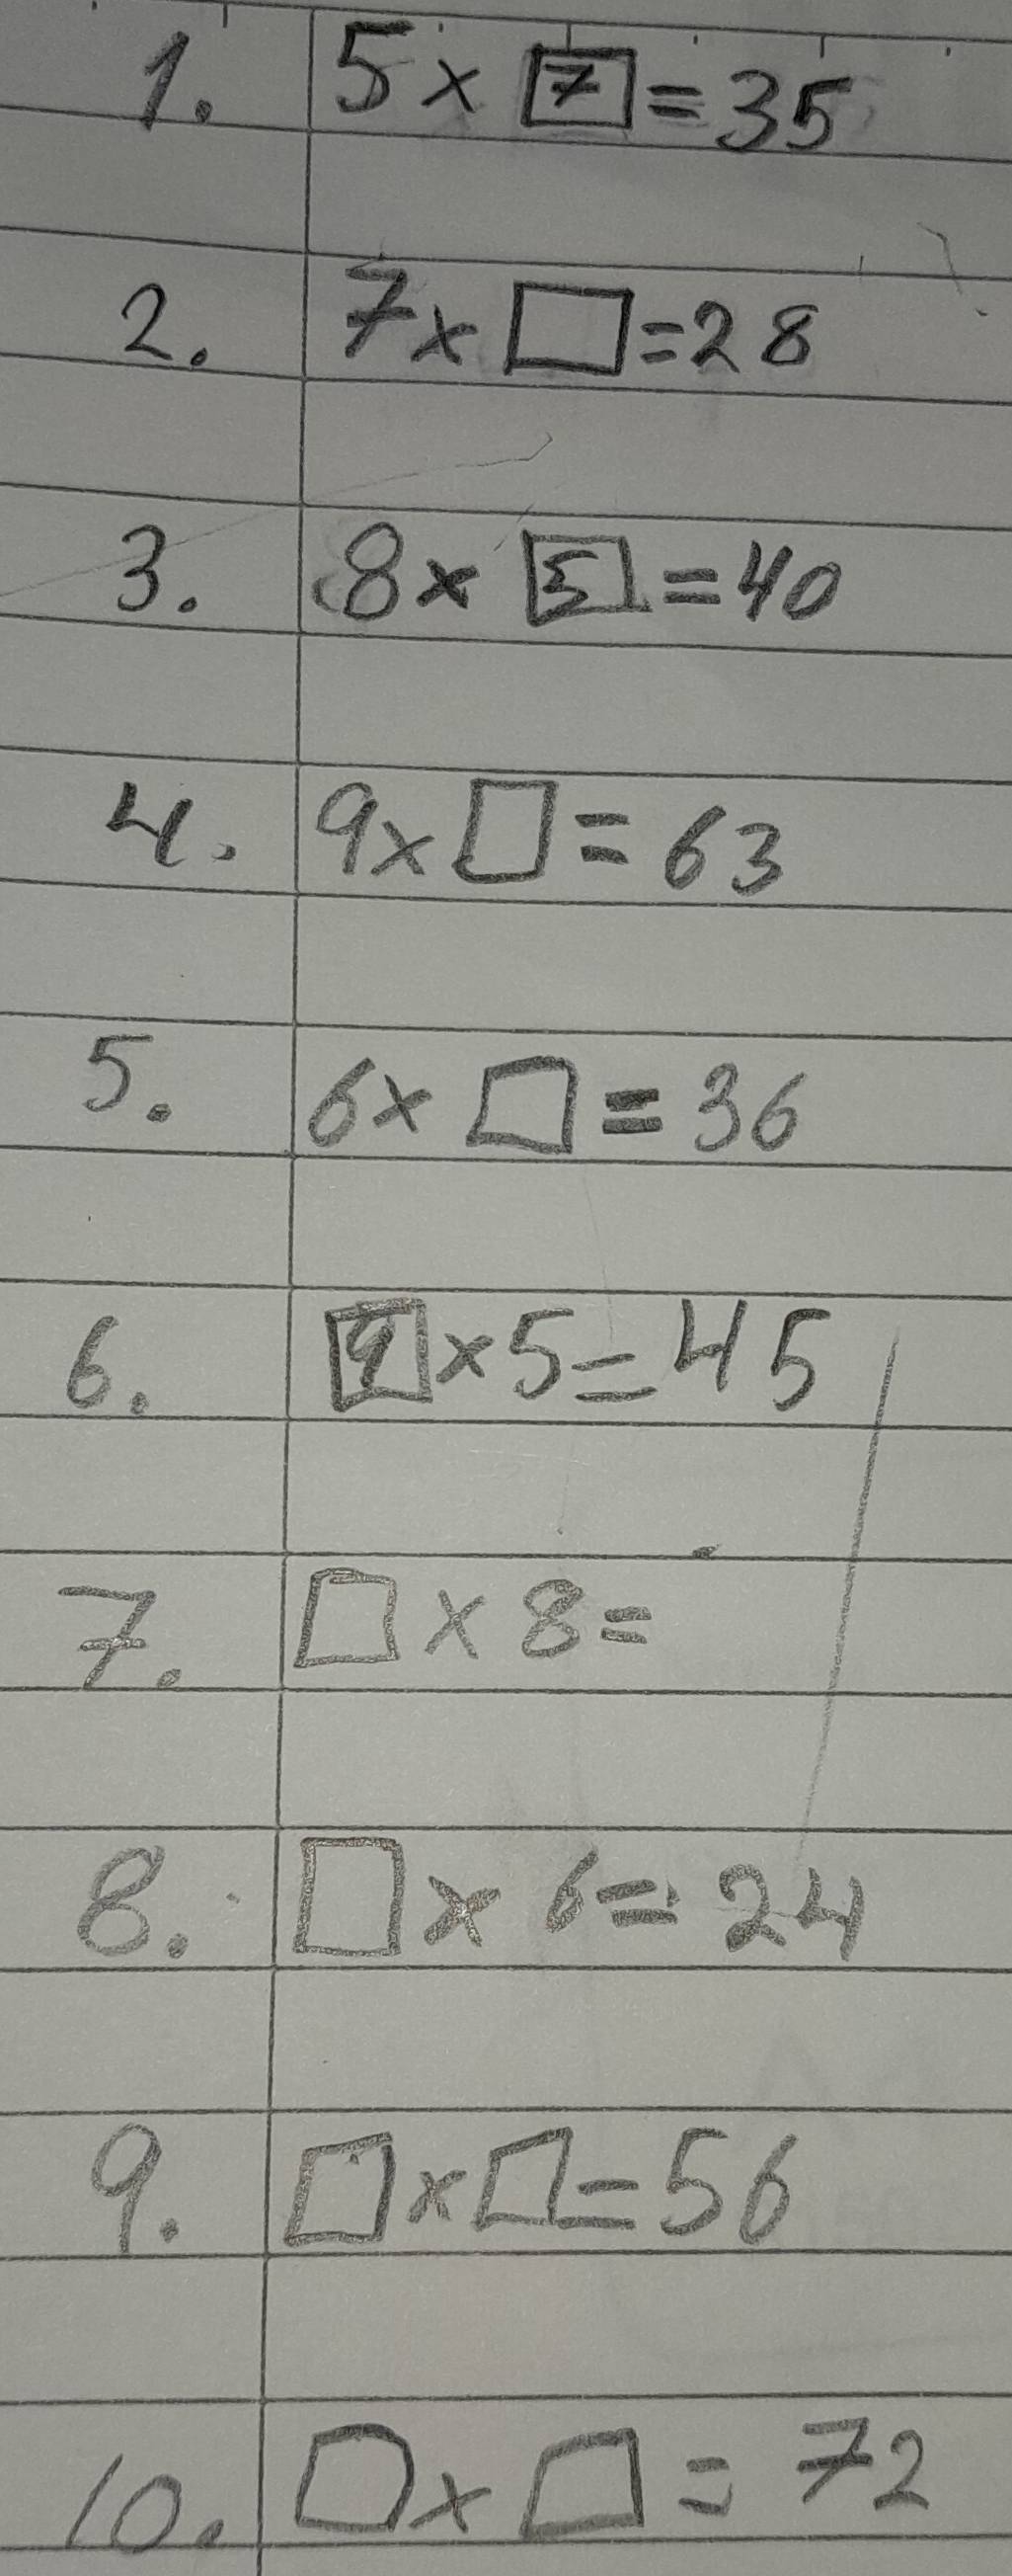 1. 5 × 7 = 35
2. 7 × □ = 28
3. 8 × 5 = 40
4. 9 × □ = 63
5. 6 × □ = 36
6. 9 × 5 = 45
7. □ × 8 =
8. □ × 6 = 24
9. □ × □ = 56
10. □ × □ = 72